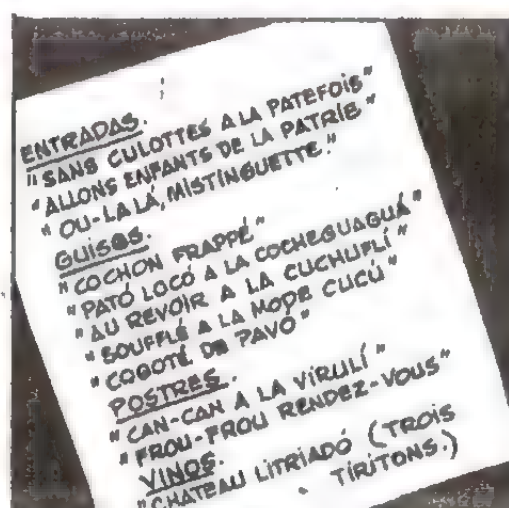 ENTRADAS.
"SANS CULOTTES A LA PATEFOIS"
"ALLONS ENFANTS DE LA PATRIE"
"OU-LA LÁ, MISTINGUETTE."
GUISOS.
"COCHON FRAPPÉ"
"PATÓ LOCÓ A LA COCHEGUAGUÁ"
"AU REVOIR A LA CUCHUFLÍ"
"SOUFFLÉ A LA MODE CUCÚ"
"COGOTÉ DE PAVÓ"
POSTRES.
"CAN-CAN A LA VIRULÍ"
"FROU-FROU RENDEZ-VOUS"
VINOS.
"CHATEAU LITRIADÓ (TROIS
TIRITONS.)